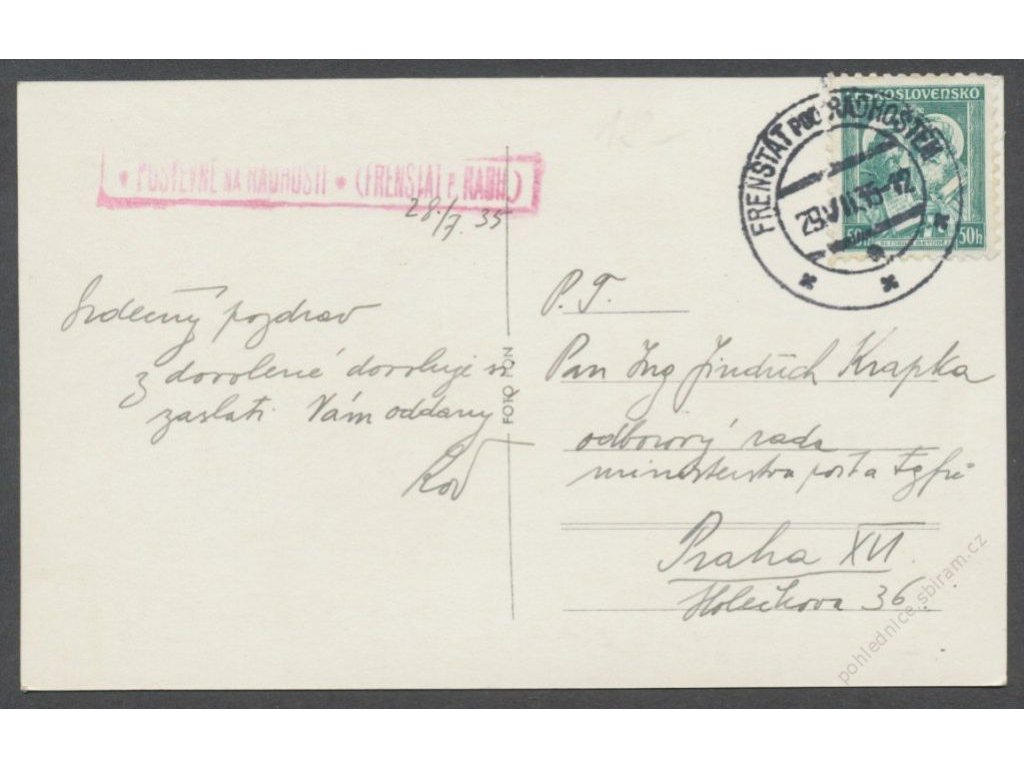 ČESKOSLOVENSKO
50h
FRENŠTÁT POD RADHOŠTĚM
29.VII.35-12
* PUSTEVNĚ NA RADHOŠTI * (FRENŠTÁT P. RADH.)
28./7. 35
Srdečný pozdrav
z dovolené dovoluje si
zaslati Vám oddaný
FOTO FON
P. T.
Pan Ing Jindřich Krapka
odborový rada
ministerstva pošt a tgfů
Praha XVI
Holečkova 36
pohlednice.sbiram.cz